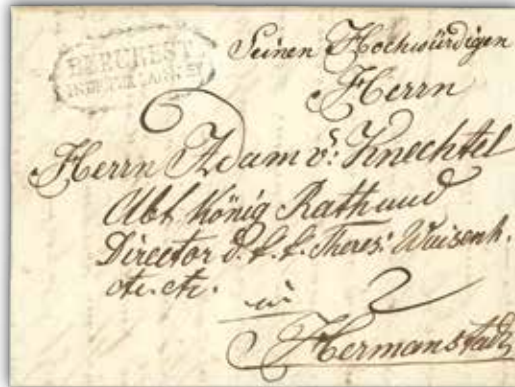 BERCHEST
IN DER WALACHEI
Seinen Hochwürdigen
Herrn
Herrn Adam v: Knechtel
Abt König Rath und
Director d. k. k. Theres: Waisenh.
etc. etc.
in
Hermanstadt